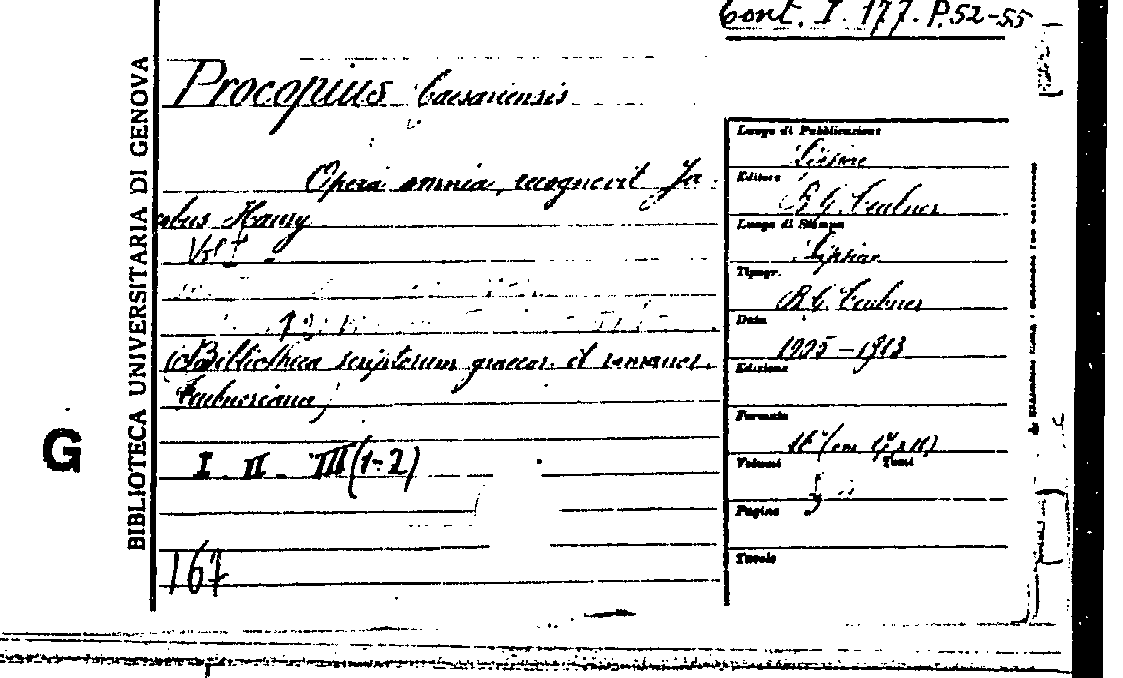 Cont. I. 177. P. 52-55
BIBLIOTECA UNIVERSITARIA DI GENOVA
Procopius Caesariensis
Opera omnia, recognovit Ja
cobus Haury
Vol I
(Bibliotheca scriptorum graecor. et romanor.
Teubneriana)
I - II - III (1-2)
167
G
Luogo di Pubblicazione
Lipsiae
Editore
B. G. Teubner
Luogo di Stampa
Lipsiae
Tipogr.
B. G. Teubner
Data
1905-1913
Edizione
Formato
16° (cm 17 x 11)
Volumi Tomi
3
Pagine
Tavole